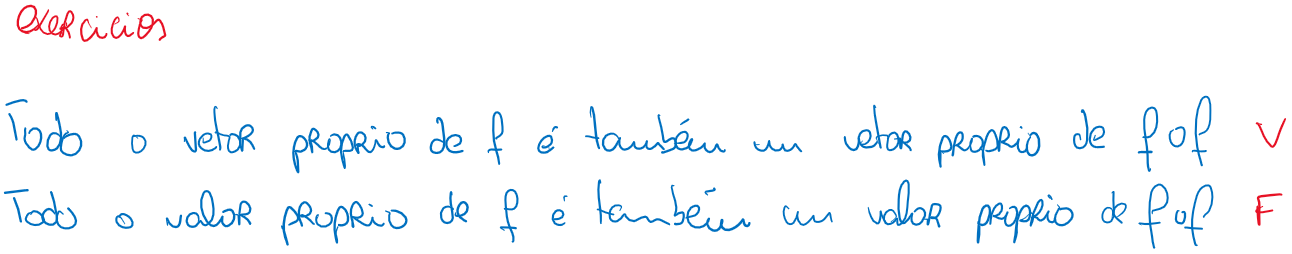 exercicios
Todo o vetor proprio de f é também um vetor proprio de f o f V
Todo o valor proprio de f é também um valor proprio de f o f F